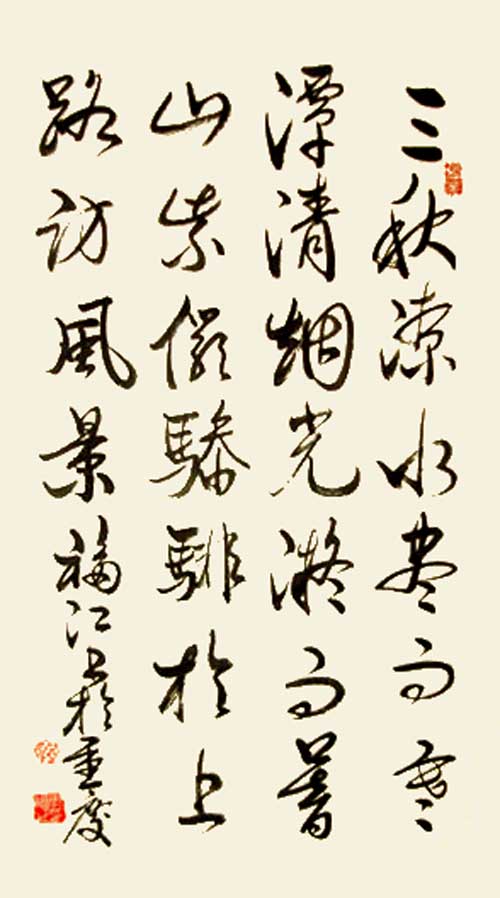 三秋潦水尽而寒
潭清烟光凝而暮
山紫儼骖騑於上
路访風景福江书於重慶